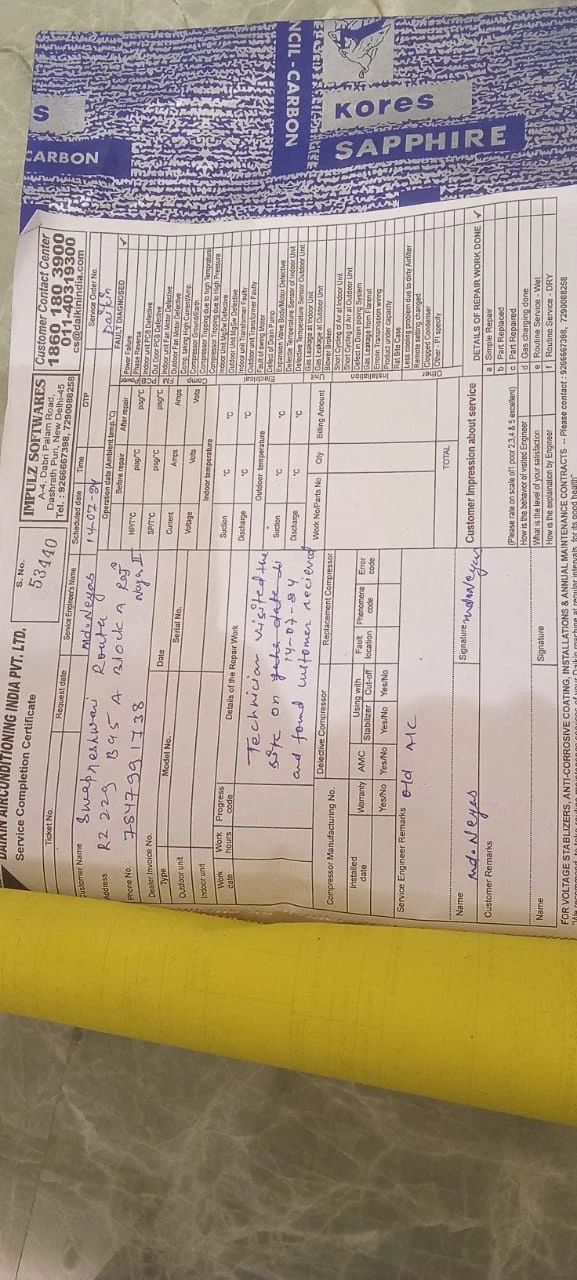 S
CARBON
NCIL - CARBON
Kores
SAPPHIRE
DAIKIN AIRCONDITIONING INDIA PVT. LTD.
Service Completion Certificate
S. No.
53440
IMPULZ SOFTWARES
A-4, Dabri Palam Road,
Dashrath Puri, New Delhi-45
Tel. : 9266667398, 7290088258
Customer Contact Center
1860 180 3900
011-40319300
cs@daikinindia.com
Ticket No.
Request date
Service Engineer's Name
Md. Neyas
Scheduled date
14-07-24
Time
OTP
Service Order No.
Daikin
Customer Name
Address
RZ 229 B45 A Block n
Phone No.
7847991738
Dealer Invoice No.
Date
Type
Model No.
Serial No.
Outdoor unit
Indoor unit
Operation data (Ambient temp.°C)
Before repair
After repair
HP/T°C psig/°C psig/°C
SP/T°C psig/°C psig/°C
Current Amps Amps
Voltage Volts Volts
Indoor temperature
Suction °C °C
Discharge °C °C
Outdoor temperature
Suction °C °C
Discharge °C °C
Work date
Work hours
Progress code
Details of the Repair Work
Technician visited the
site on
14-07-24
and found customer recieved
Work No/Parts No
Qty
Billing Amount
TOTAL
Compressor Manufacturing No.
Defective Compressor
Replacement Compressor
Installed date
Warranty
AMC
Using with
Stabilizer
Cut-off
Fault location
Phenomena code
Error code
Yes/No Yes/No Yes/No Yes/No
Service Engineer Remarks
old A/C
Name
Md. Neyas
Signature
Md Neyas
Customer Remarks
Name
Signature
FAULT DIAGNOSED ✓
Power
Power Failure ✓
Phase Reverse
PCB
Indoor unit PCB Defective
Outdoor unit PCB Defective
FM
Indoor unit Fan Motor Defective
Outdoor Fan Motor Defective
Comp
Comp. Taking High Current/Amp.
Compressor Tripping due to high Temprature
Compressor Tripping due to High Pressure
Electrical
Indoor Unit MgSw Defective
Outdoor Unit MgSw Defective
Indoor unit Transformer Faulty
Outdoor unit Transformer Faulty
Fault of swing Motor
Defect of Drain Pump
Expansion Valve Body/Motor Defective
Defective Temperature Sensor of Indoor Unit
Defective Temperature Sensor Outdoor Unit
Unit
Gas Leakage at Indoor Unit
Gas Leakage at Outdoor Unit
Blower Broken
Installation
Short Cycling of Air at Indoor Unit
Short Cycling of Air at Outdoor Unit
Defect in Drain piping System
Gas Leakage from Flarenut
Erron. in transmission wiring
Product under capacity
Other
Rat Bite Case
Less cooling problem due to dirty Airfilter
Remote setting changed
Clogged Condenser
Other - Pl specify
Customer Impression about service
(Please rate on scale of1 poor 2,3,4 & 5 excellent)
How is the behavior of visited Engineer
What is the level of your satisfaction
How is the explanation by Engineer
DETAILS OF REPAIR WORK DONE ✓
a Simple Repair
b Part Replaced
c Part Repaired
d Gas charging done
e Routine Service - Wet
f Routine Service - DRY
FOR VOLTAGE STABLIZERS, ANTI-CORROSIVE COATING, INSTALLATIONS & ANNUAL MAINTENANCE CONTRACTS -- Please contact : 9266667398, 7290088258